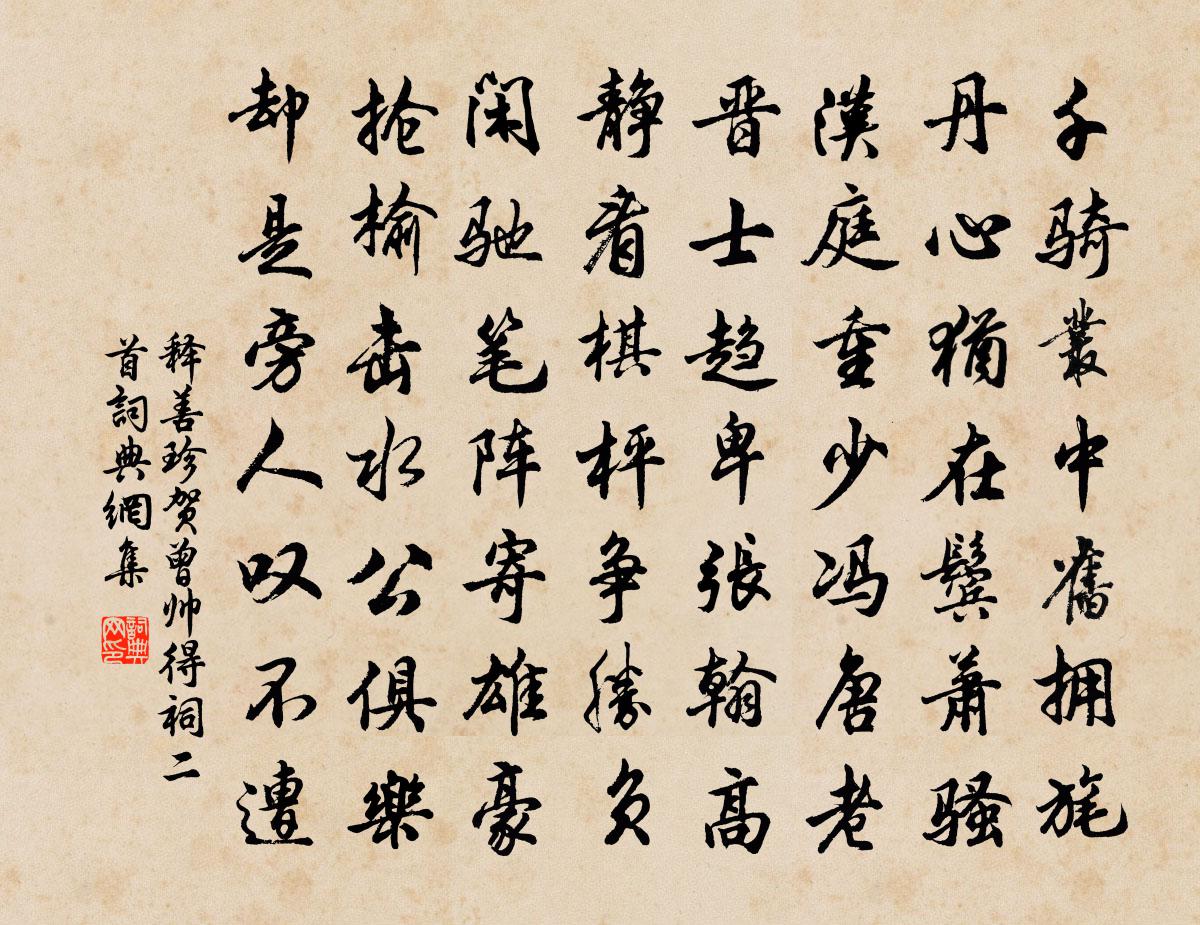 千骑叢中奮拥旄
丹心犹在鬓萧骚
漢庭重少冯唐老
晋士趋卑張翰高
静看棋枰争勝负
闲驰笔阵寄雄豪
抢榆击水公俱樂
却是旁人叹不遭
释善珍贺曾帅得祠二
首詞典網集
詞典
网印